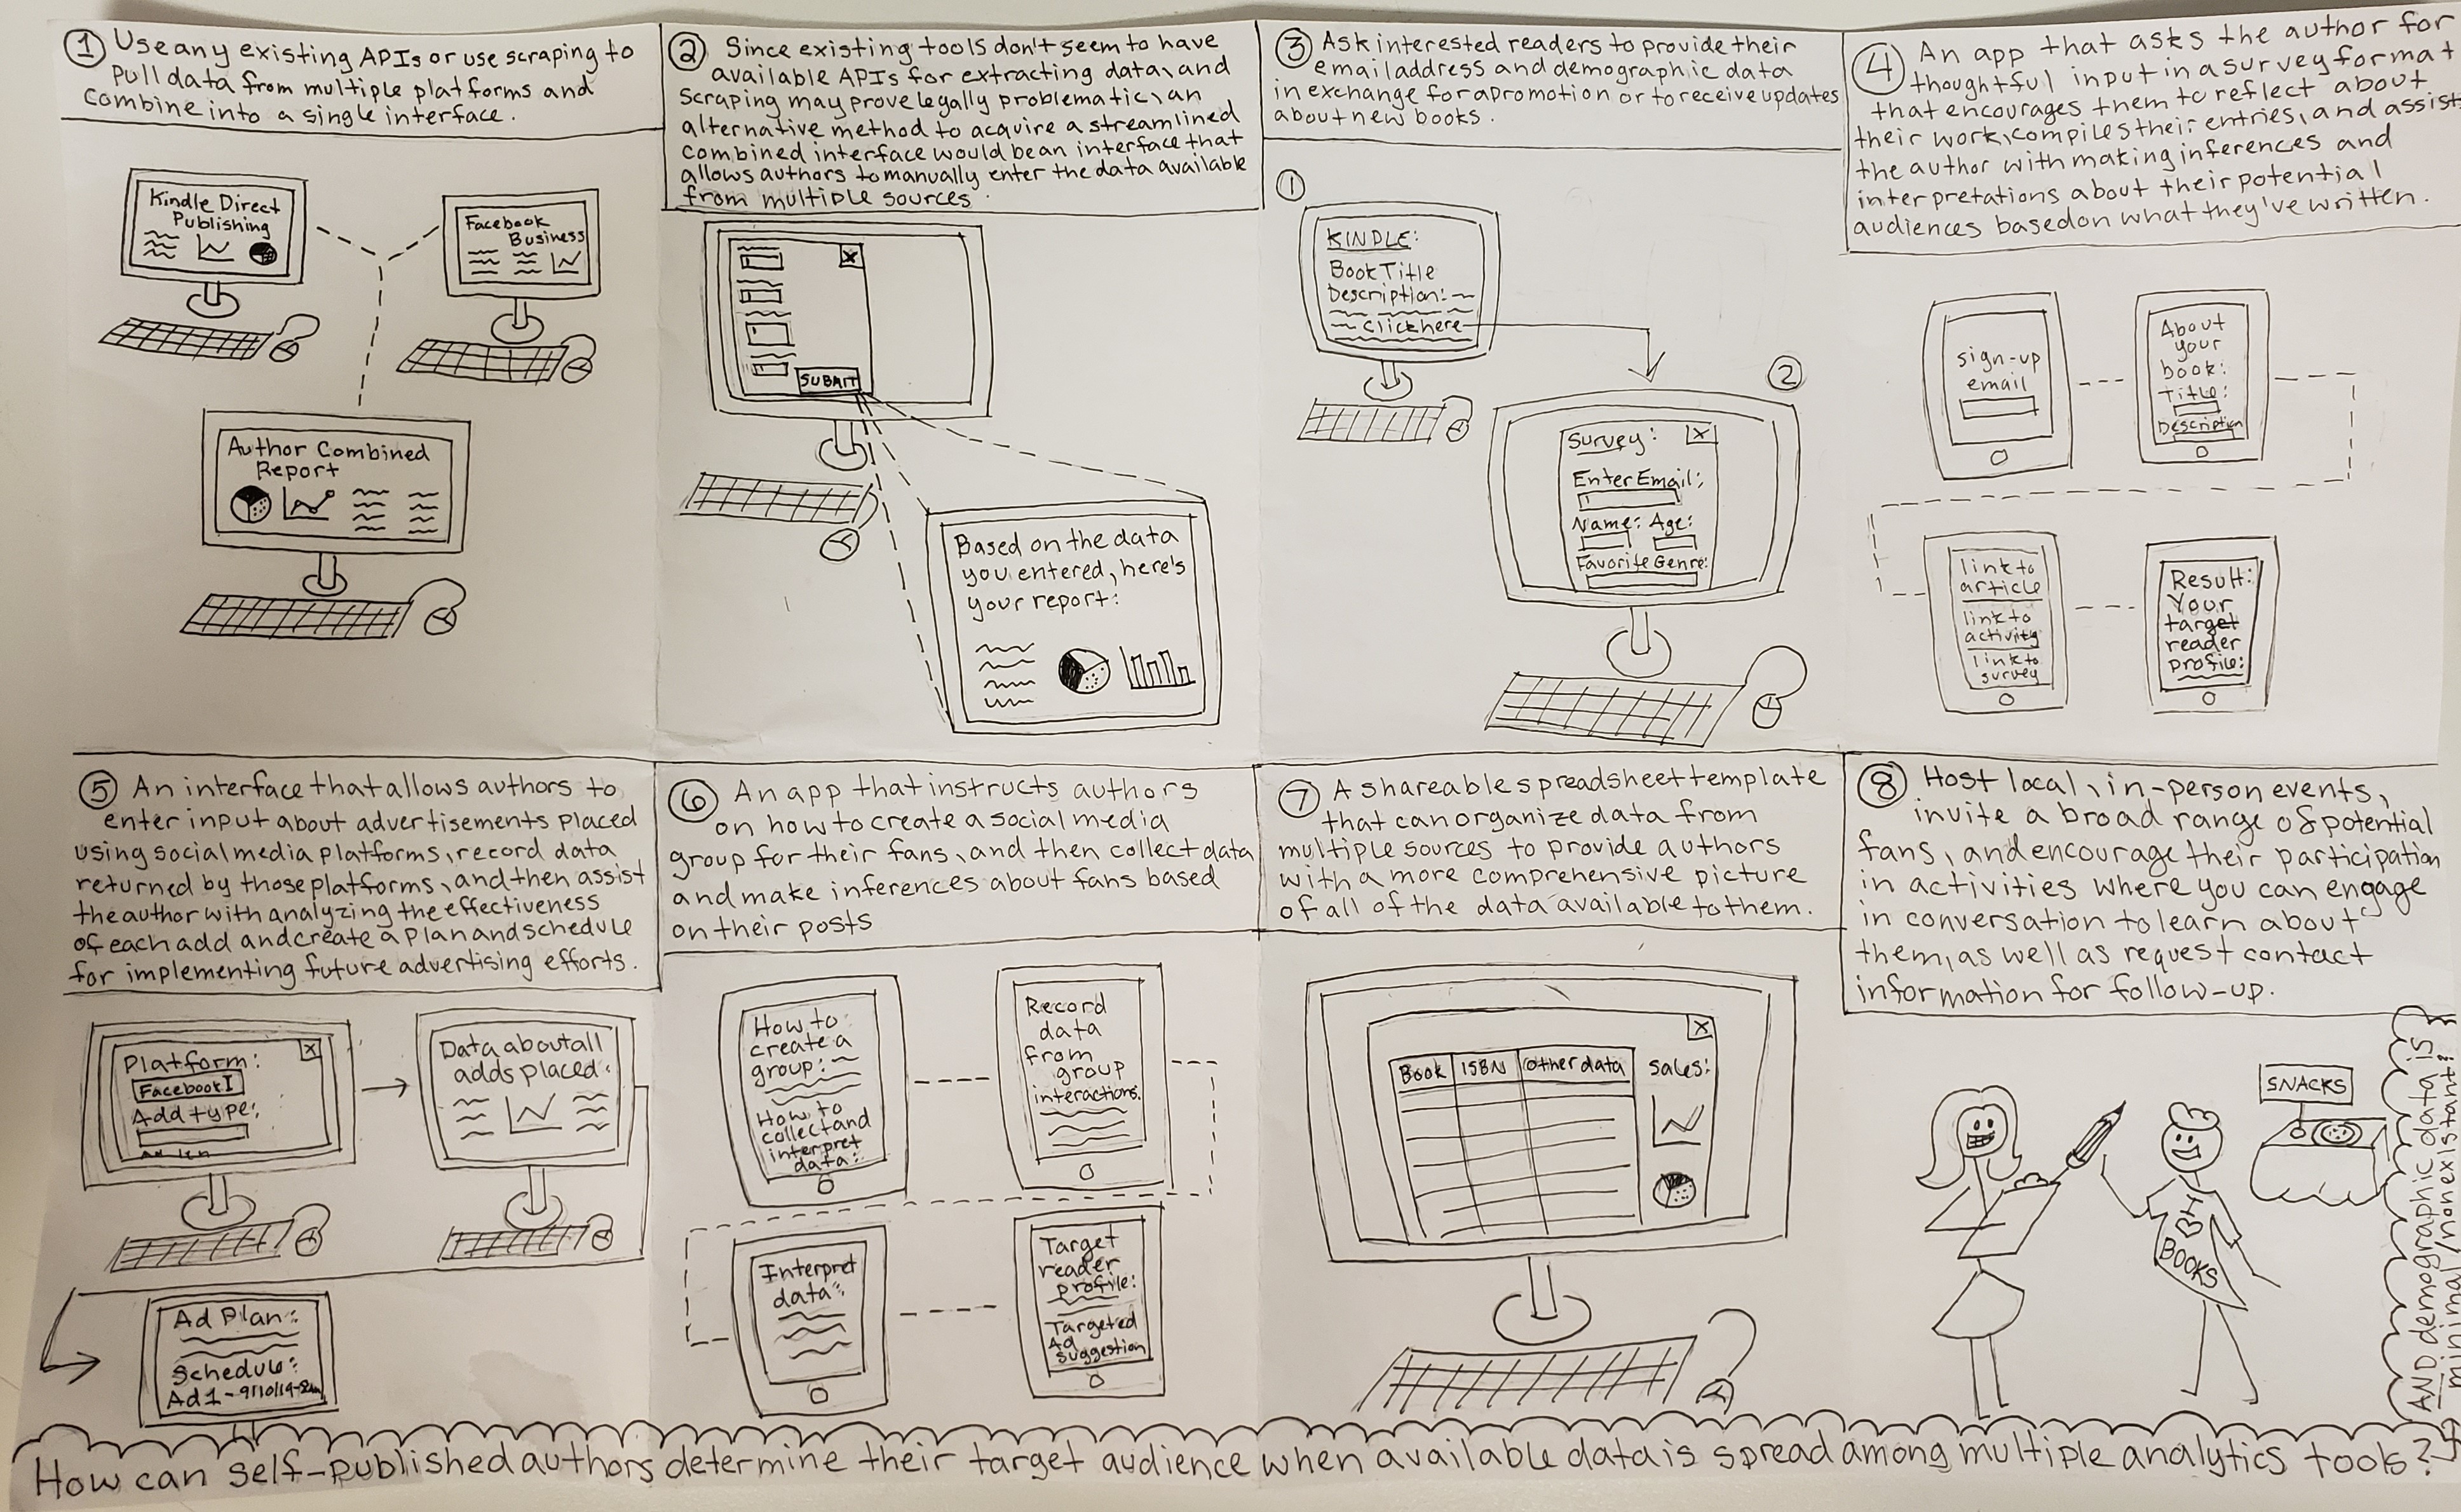 ① Use any existing APIs or use scraping to
pull data from multiple platforms and
combine into a single interface.
Kindle Direct
Publishing
Facebook
Business
Author Combined
Report
② Since existing tools don't seem to have
available APIs for extracting data, and
scraping may prove legally problematic, an
alternative method to acquire a streamlined
combined interface would be an interface that
allows authors to manually enter the data available
from multiple sources.
X
SUBMIT
Based on the data
you entered, here's
your report:
③ Ask interested readers to provide their
email address and demographic data
in exchange for a promotion or to receive updates
about new books.
①
KINDLE:
Book Title
Description:
Click here
②
Survey: X
Enter Email:
Name: Age:
Favorite Genre:
④ An app that asks the author for
thoughtful input in a survey format
that encourages them to reflect about
their work, compiles their entries, and assist
the author with making inferences and
interpretations about their potential
audiences based on what they've written.
sign-up
email
About
your
book:
Title:
Description
link to
article
link to
activity
link to
survey
Result:
Your
target
reader
profile:
⑤ An interface that allows authors to
enter input about advertisements placed
using social media platforms, record data
returned by those platforms, and then assist
the author with analyzing the effectiveness
of each add and create a plan and schedule
for implementing future advertising efforts.
Platform: X
Facebook I
Add type:
Data about all
adds placed:
Ad Plan:
Schedule:
Ad 1 - 9/10/19-2am
⑥ An app that instructs authors
on how to create a social media
group for their fans, and then collect data
and make inferences about fans based
on their posts
How to
create a
group:
How to
collect and
interpret
data:
Record
data
from
group
interactions.
Interpret
data:
Target
reader
profile:
Targeted
Ad
suggestion
⑦ A shareable spreadsheet template
that can organize data from
multiple sources to provide authors
with a more comprehensive picture
of all of the data available to them.
X
Book ISBN Other data Sales:
⑧ Host local, in-person events,
invite a broad range of potential
fans, and encourage their participation
in activities where you can engage
in conversation to learn about
them, as well as request contact
information for follow-up.
SNACKS
I
BOOKS
How can self-published authors determine their target audience when available data is spread among multiple analytics tools?
AND demographic data is
minimal/nonexistant?